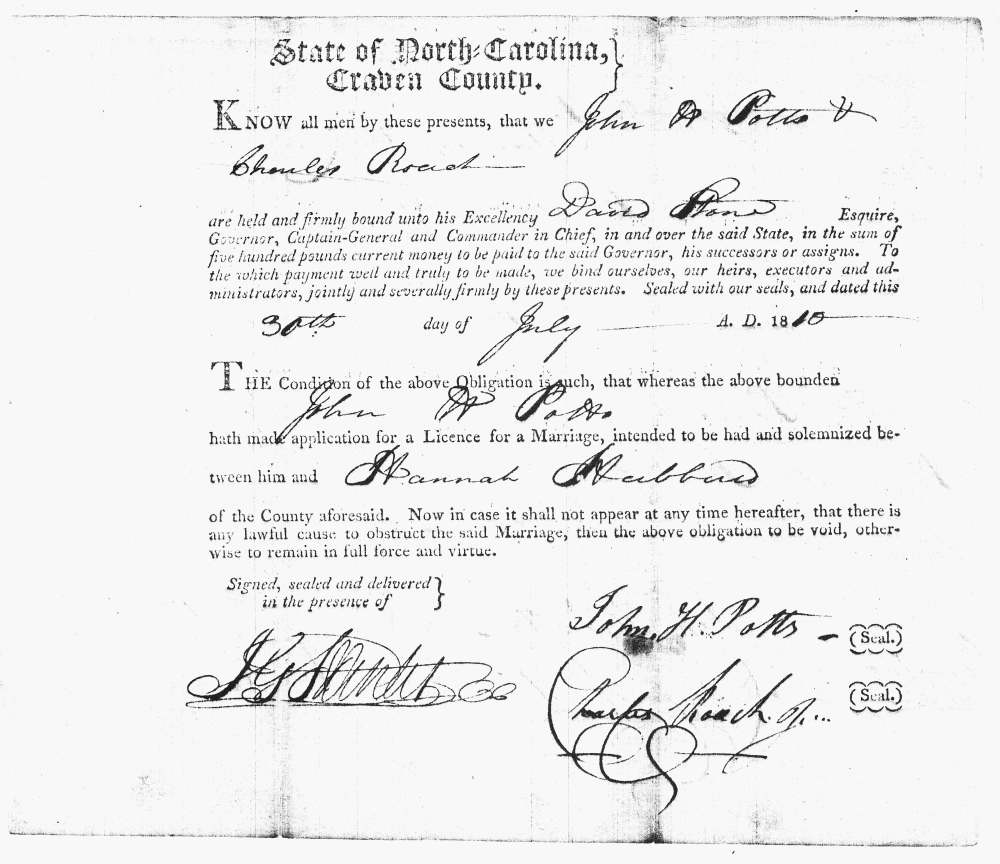 State of North-Carolina,
Craven County.
KNOW all men by these presents, that we John H Potts &
Charles Roach
are held and firmly bound unto his Excellency David Stone Esquire,
Governor, Captain-General and Commander in Chief, in and over the said State, in the sum of
five hundred pounds current money to be paid to the said Governor, his successors or assigns. To
the which payment well and truly to be made, we bind ourselves, our heirs, executors and ad-
ministrators, jointly and severally firmly by these presents. Sealed with our seals, and dated this
30th day of July A. D. 1810
THE Condition of the above Obligation is such, that whereas the above bounden
John H Potts
hath made application for a Licence for a Marriage, intended to be had and solemnized be-
tween him and Hannah Hubbard
of the County aforesaid. Now in case it shall not appear at any time hereafter, that there is
any lawful cause to obstruct the said Marriage, then the above obligation to be void, other-
wise to remain in full force and virtue.
Signed, sealed and delivered
in the presence of
John. H. Potts (Seal.)
Charles Roach (Seal.)